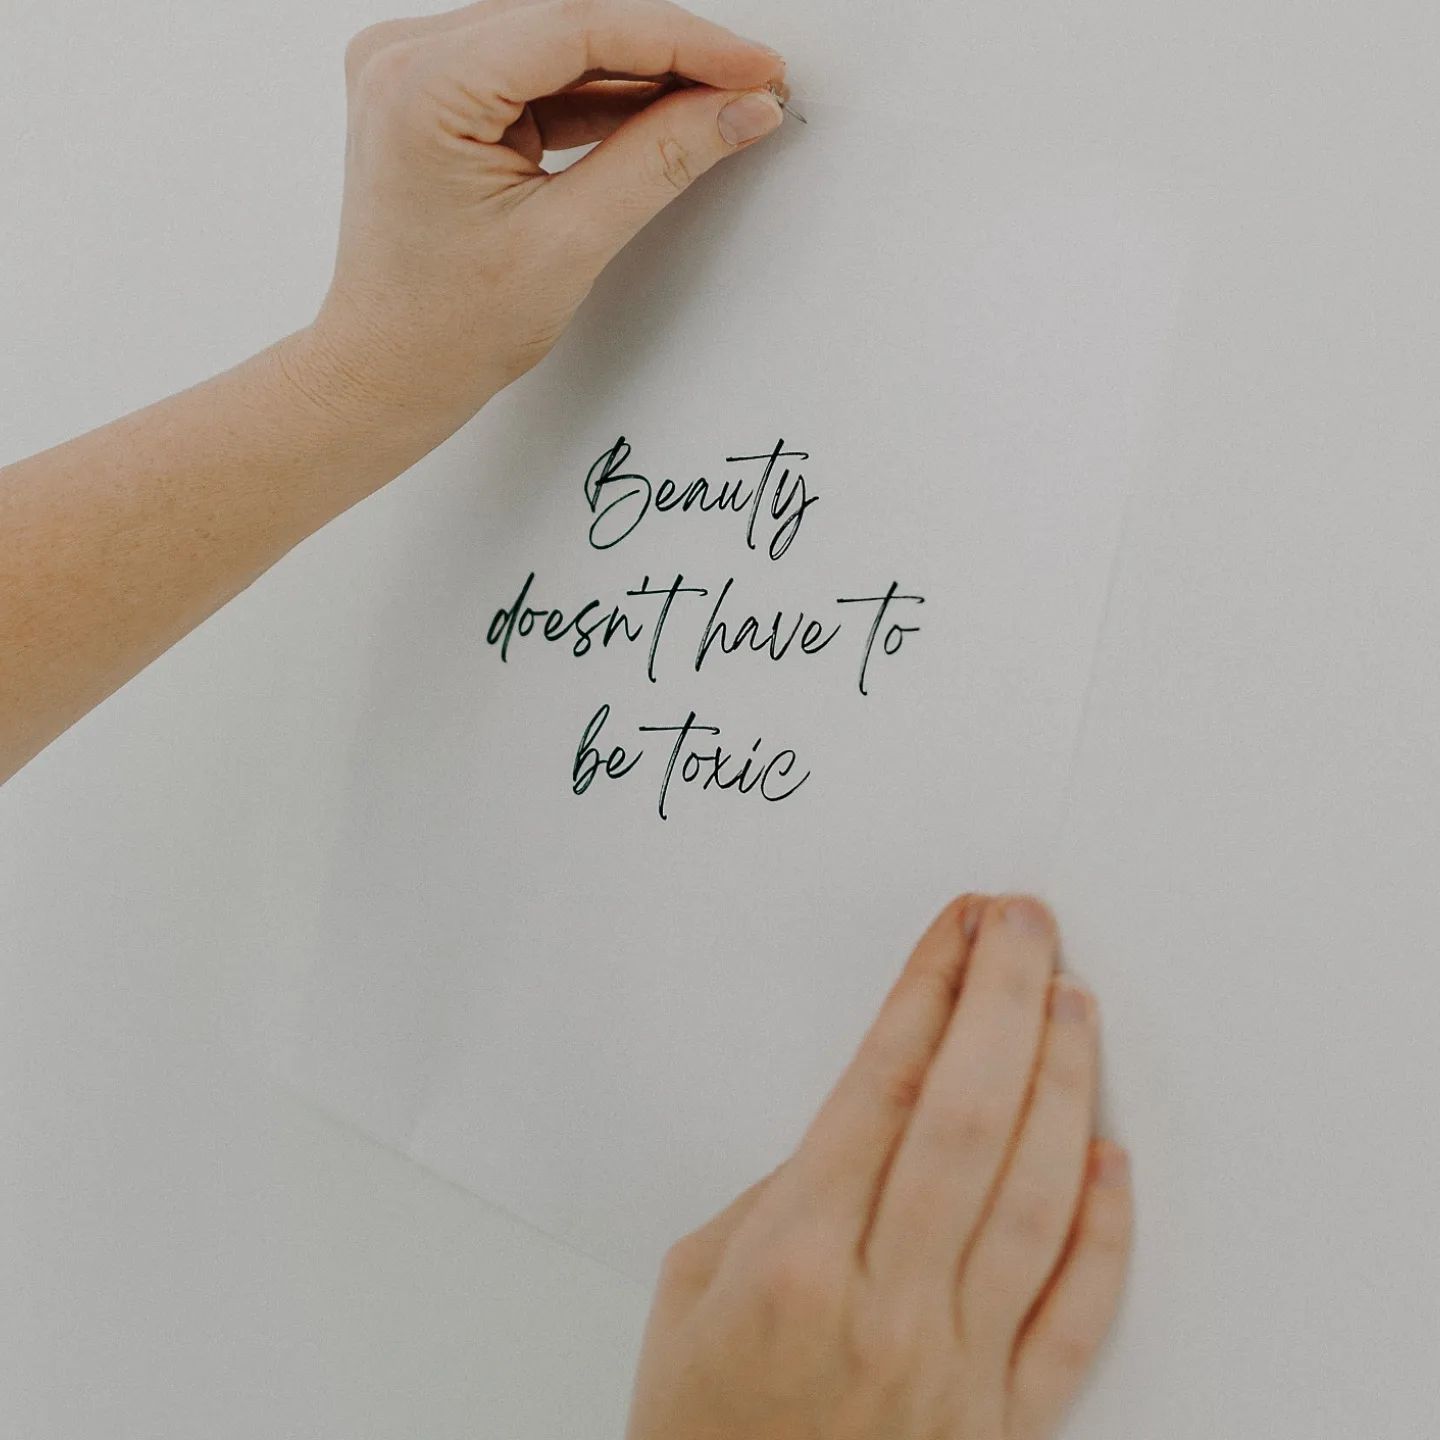 Beauty
doesn't have to
be toxic